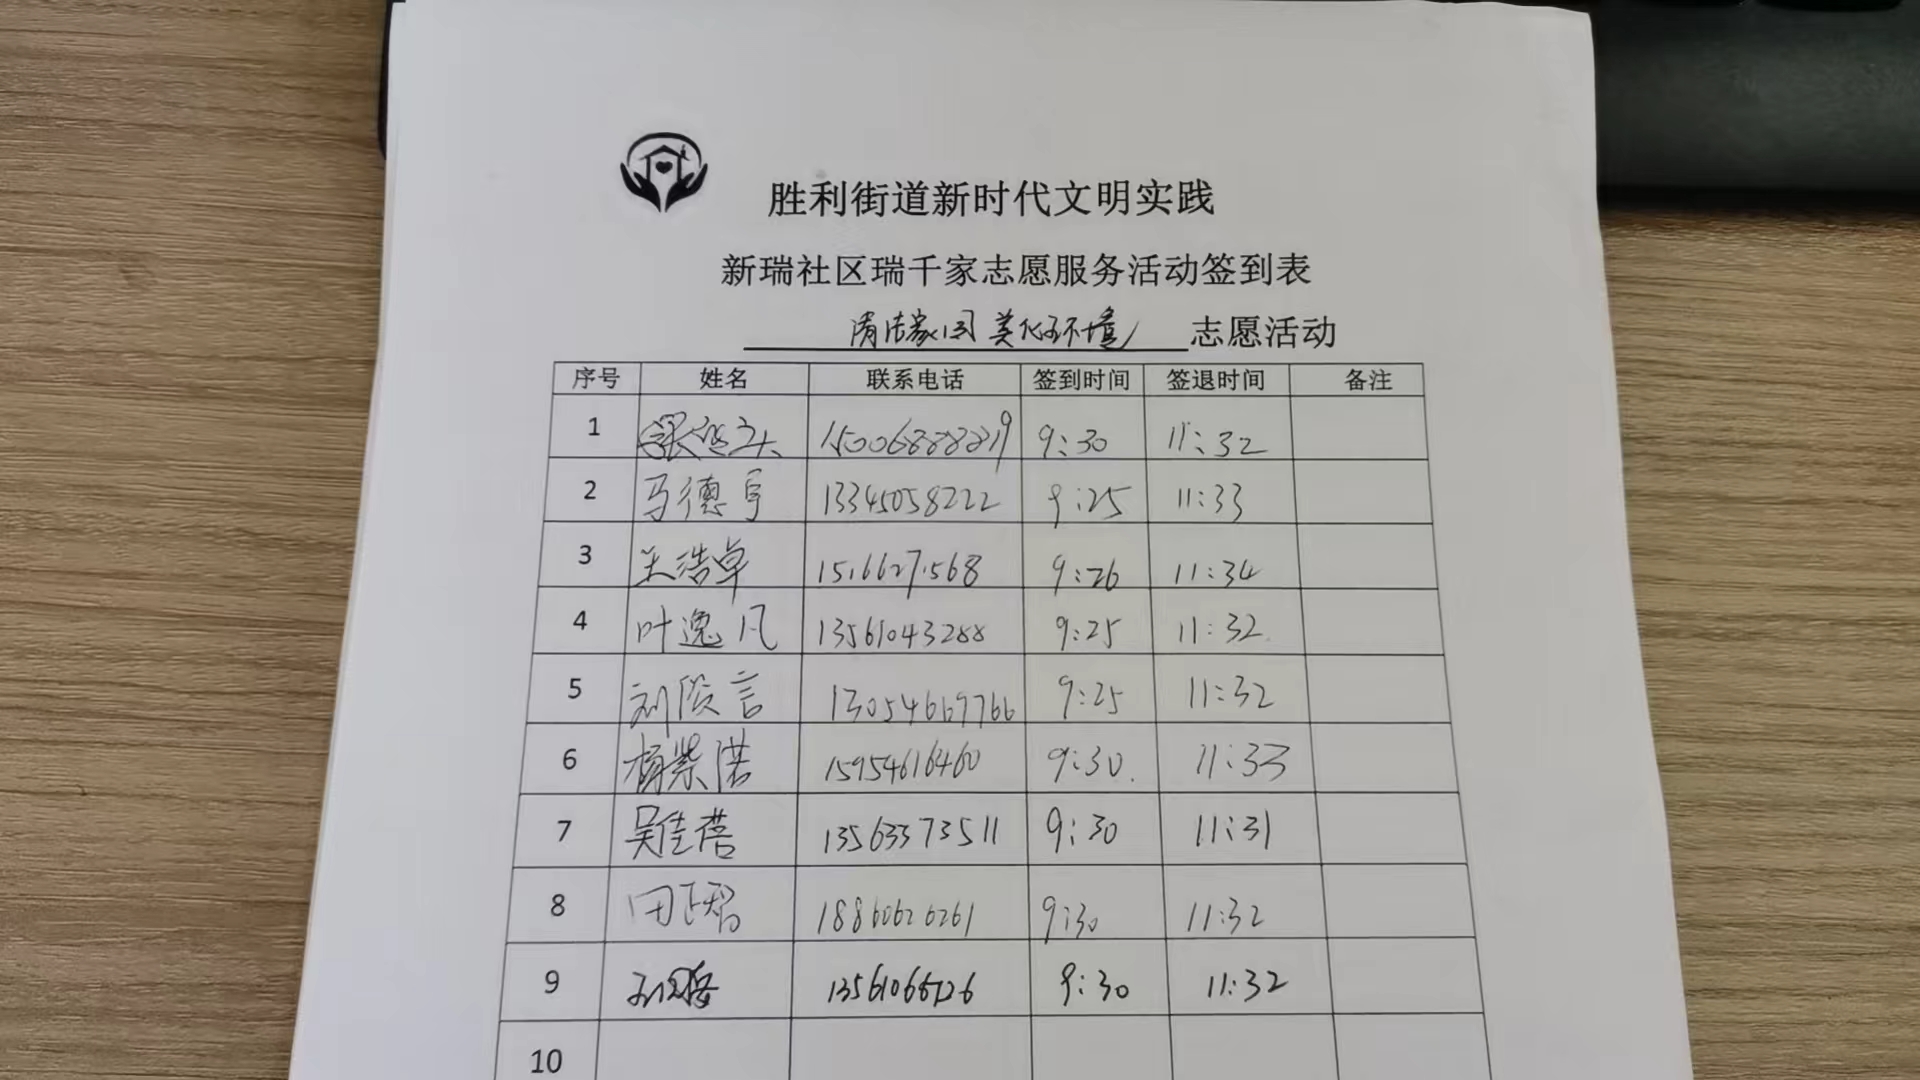 胜利街道新时代文明实践
新瑞社区瑞千家志愿服务活动签到表
清洁家园 美化环境 志愿活动
序号 姓名 联系电话 签到时间 签退时间 备注
1 9:30 11:32
2 马德亨 13345058222 9:25 11:33
3 王浩卓 9:26 11:34
4 叶逸凡 13561043288 9:25 11:32
5 刘俊言 13054669766 9:25 11:32
6 杨紫诺 15954616460 9:30 11:33
7 吴佳蓓 13563373511 9:30 11:31
8 18860626261 9:30 11:32
9 9:30 11:32
10